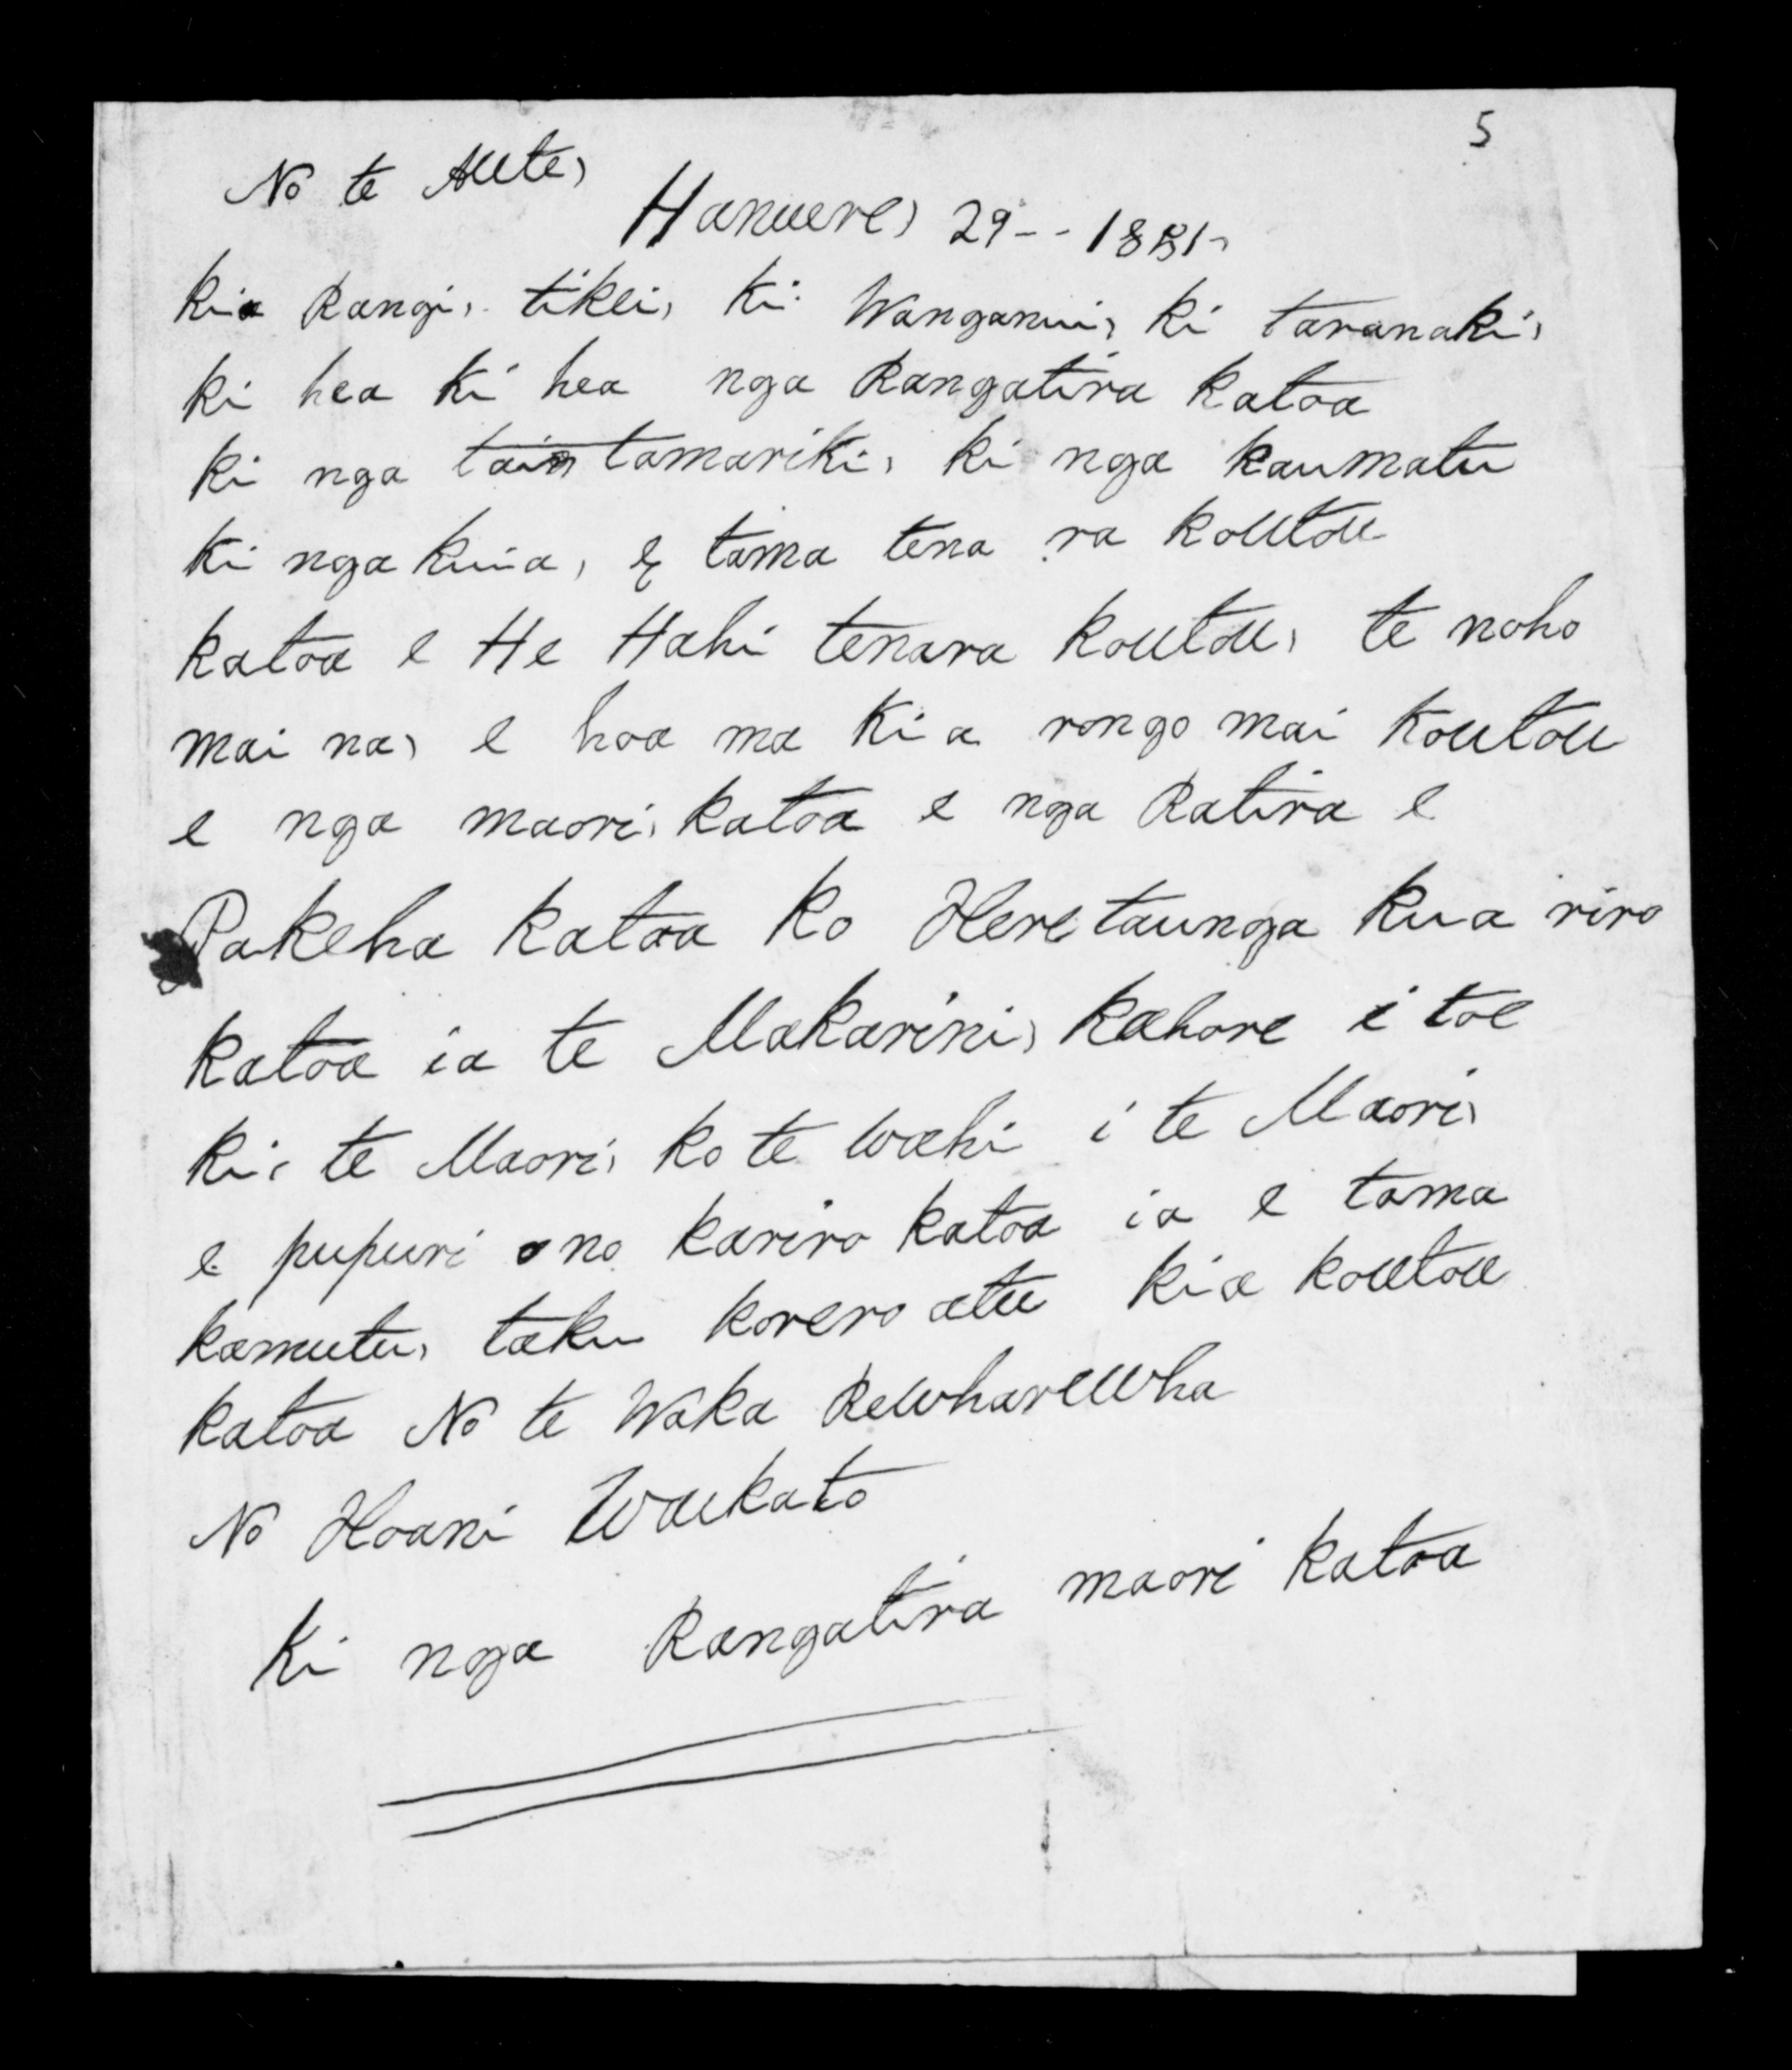 5
No te Aute,
Hanuere, 29-- 1881-
kia Rangi, tikei, ki Wanganui, ki taranaki,
ki hea ki hea nga Rangatira katoa
ki nga tamariki, ki nga kaumatu
ki nga kuia, e tama tena ra koutou
katoa e He Hahi tenara koutou, te noho
mai na, e hoa ma kia rongo mai koutou
e nga maori, katoa e nga Ratira e
Pakeha katoa ko Heretaunga kua riro
katoa ia te Makarini, kahore i toe
ki, te Maori, ko te wahi i te Maori,
e pupuri ono kariro katoa ia e tama
kamutu, taku korero atu kia koutou
katoa No te Waka Rewharewha
No Hoani Waikato
Ki nga Rangatira maori katoa